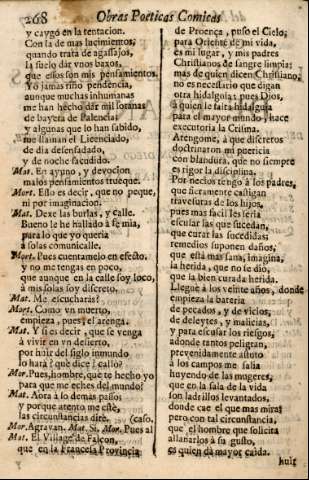 268 Obras Poeticas Comicas
y caygò en la tentacion.
Con la de mas lucimientos,
quando trata de agassajos,
la suelo dàr vnos baxos,
que essos son mis pensamientos.
Yo jamas riño pendencia,
aunque muchas inhumanas
me han hecho dàr mil soranas
de bayeta de Palencia:
y algunas que lo han sabido,
me llaman el Licenciado,
de dia desenfadado,
y de noche sacudido.
Mat. En ayuno, y devocion
malos pensamientos trueque.
Mort. Esto es decir, que no peque,
ni por imaginacion.
Mat. Dexe las burlas, y calle.
Bueno le he hallado à fe mia,
para lo que yo queria
à solas comunicalle.
Mort. Pues cuentamelo en efecto,
y no me tengas en poco,
que aunque en la calle soy loco,
à mis solas soy discreto.
Mat. Me escucharàs?
Mort. Como vn muerto,
empieza, pues, el arenga.
Mat. Y si es decir, que se venga
à vivir en vn desierto,
por huir del siglo inmundo
lo harà? què dice? callo?
Mor. Pues, hombre, què te hecho yo
para que me eches del mundo?
Mat. Aora à lo demàs passo
y porque atento me estè,
las circunstancias dirè. (caso.
Mor. Agravan. Mat. Si. Mor. Pues al
Mat. El Village de Falcon,
que en la Francesa Provincia
de Proença, puso el Cielo,
para Oriente de mi vida,
es mi lugar, y mis padres
Christianos de sangre limpia:
mas de quien dicen Christiano,
no es necesario que digan
otra hidalguia: pues Dios,
à quien le falta hidalguia
para el mayor mundo, hace
executoria la Crisma.
Arengome, à que discretos
doctrinaron mi puericia
con blandura, que no siempre
es rigor la disciplina.
Por necios tengo à los padres,
que fieramente castigan
travesuras de los hijos,
pues mas facil les seria
escusar las que sucedan,
que curar las sucedidas:
remedios suponen daños,
que està mas sana, imagina,
la herida, que no se dio,
que la bien curada herida.
Lleguè à los veinte años, donde
empieza la bateria
de pecados, y de vicios,
de deleytes, y malicias,
y para escusar los riesgos,
adonde tantos peligran,
prevenidamente astuto
à los campos me salia
huyendo de las mugeres,
que en la sala de la vida
son ladrillos levantados,
donde cae el que mas mira:
pero con tal circunstancia,
que el hombre que solicita
allanarlos à su gusto,
es quien dà mayor caida.
huir